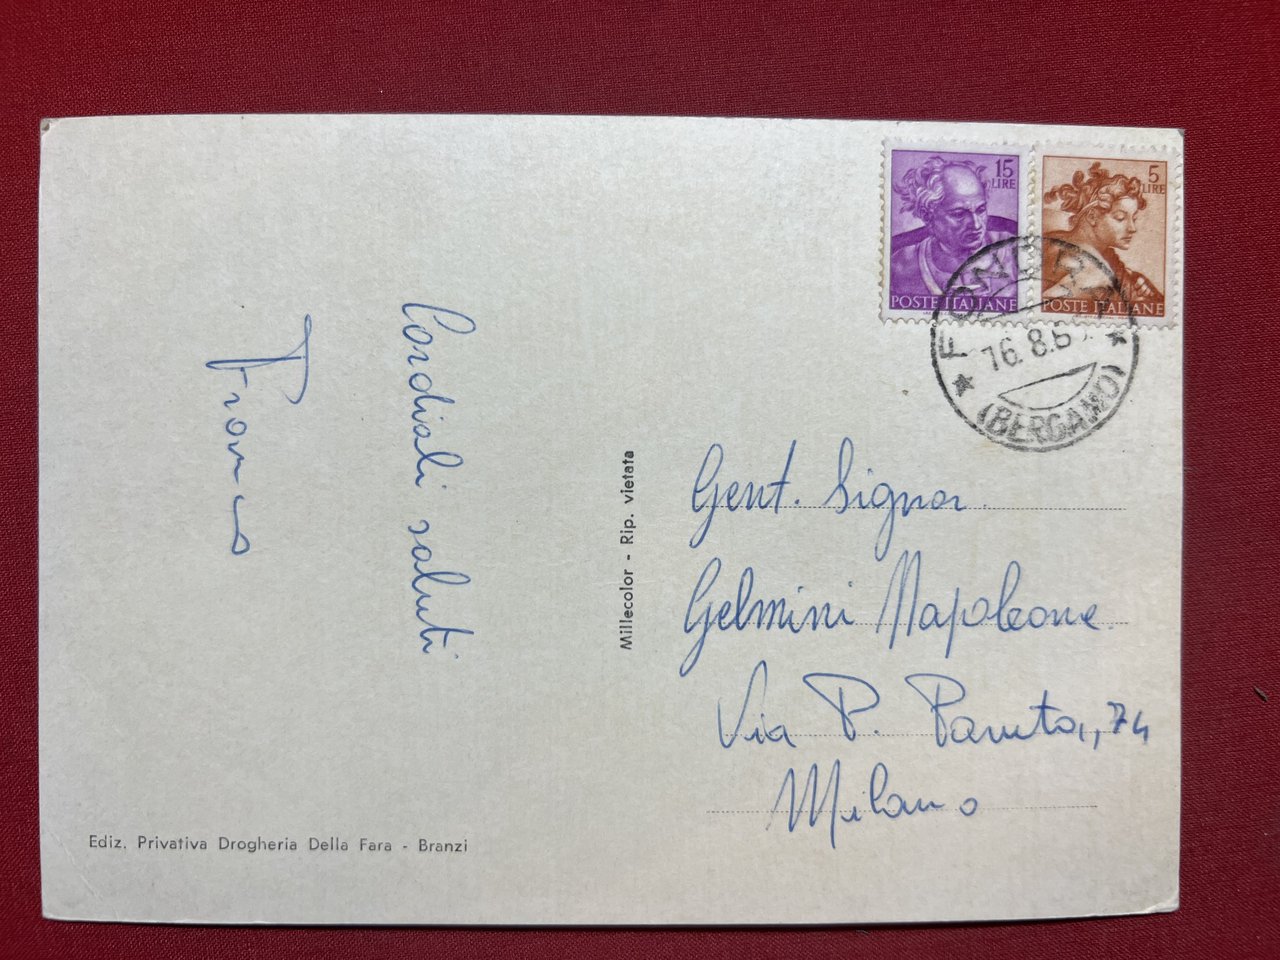 Cordiali saluti
Franco
Millecolor - Rip. vietata
Ediz. Privativa Drogheria Della Fara - Branzi
15
LIRE
POSTE ITALIANE
5
LIRE
POSTE ITALIANE
16.8.6
(BERGAMO)
Gent. Signor.
Gelmini Napoleone.
Via P. Paruta, 74
Milano